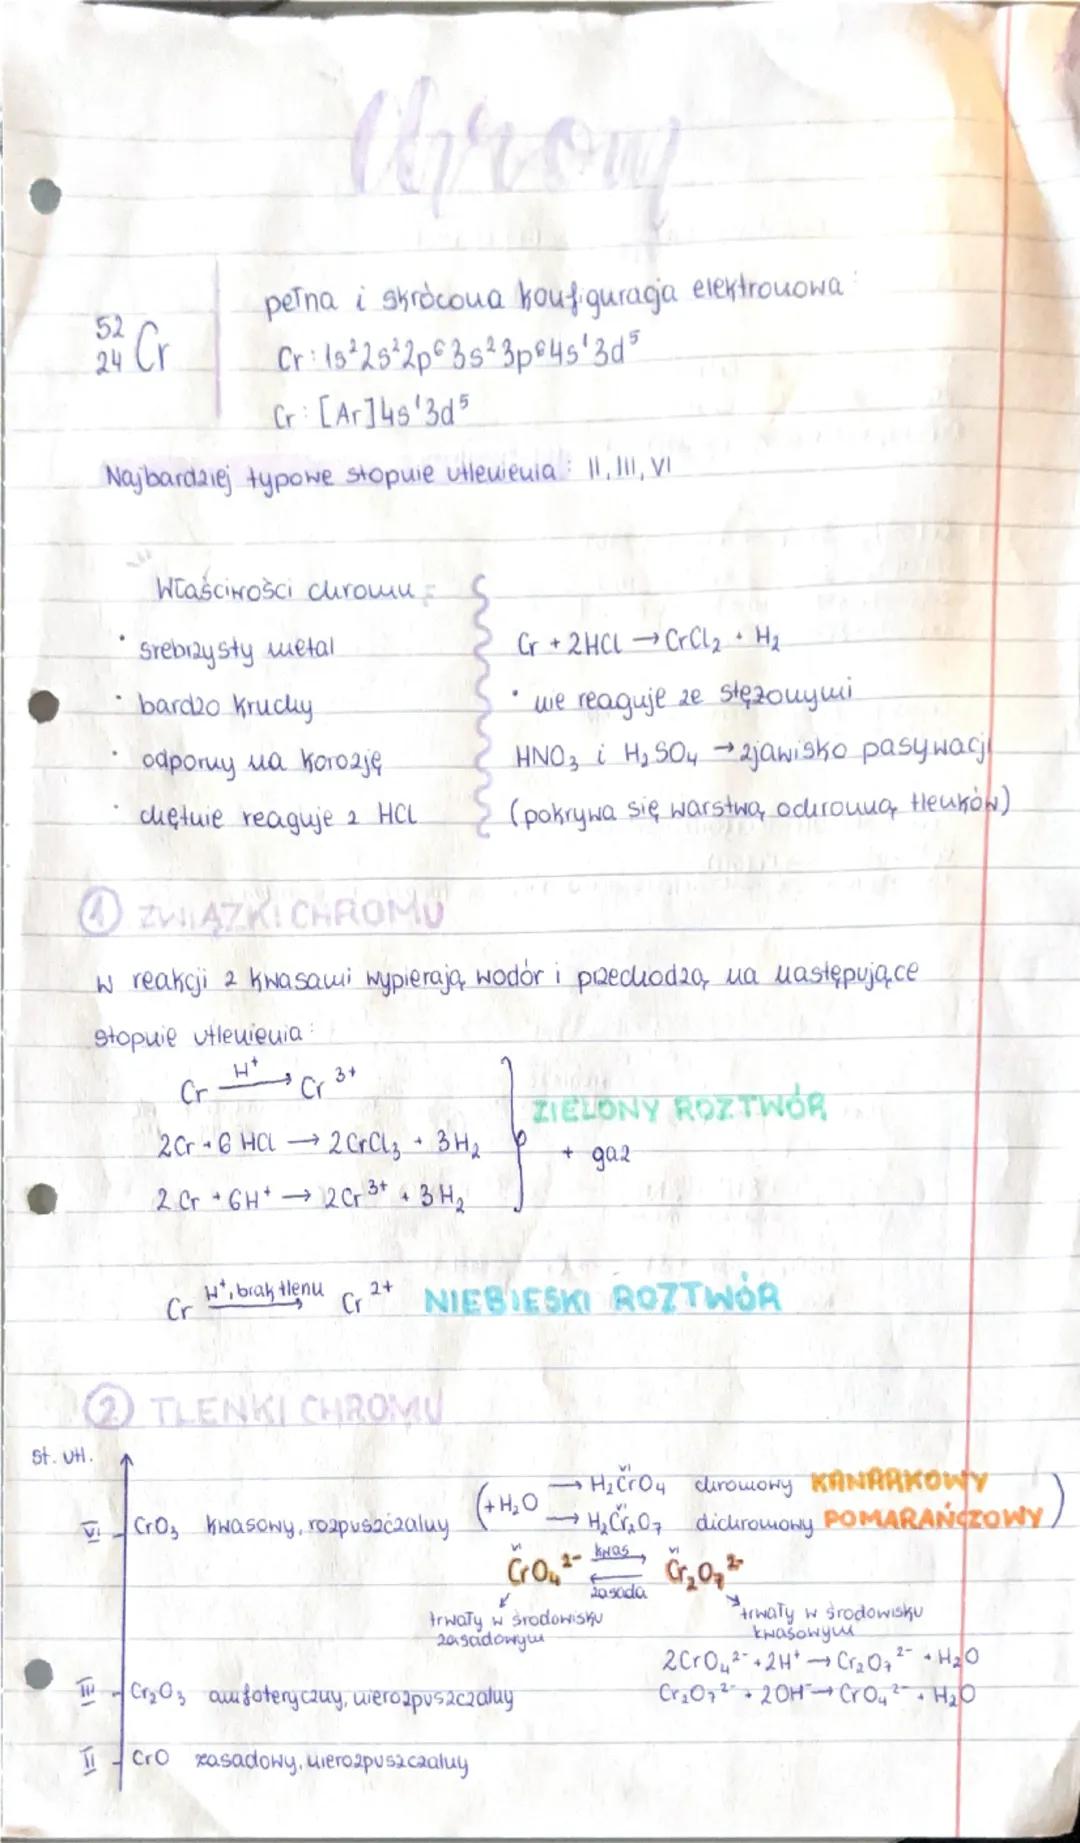 Chrom
52
24 Cr
pełna i skrócona konfiguracja elektronowa:
Cr: 1s²2s²2p⁶3s²3p⁶4s¹3d⁵
Cr: [Ar]4s¹3d⁵
Najbardziej typowe stopnie utlenienia: II, III, VI
Właściwości chromu:
• srebrzysty metal
• bardzo kruchy
• odporny na korozję
• chętnie reaguje z HCl
Cr + 2HCl → CrCl₂ + H₂
• nie reaguje ze stężonymi
HNO₃ i H₂SO₄ → zjawisko pasywacji
(pokrywa się warstwą ochronną tlenków)
① ZWIĄZKI CHROMU
w reakcji z kwasami wypierają wodór i przechodzą na następujące
stopnie utlenienia:
Cr —H⁺→ Cr³⁺
2Cr + 6HCl → 2CrCl₃ + 3H₂
2Cr + 6H⁺ → 2Cr³⁺ + 3H₂
ZIELONY ROZTWÓR
+ gaz
Cr —H⁺, brak tlenu→ Cr²⁺ NIEBIESKI ROZTWÓR
② TLENKI CHROMU
st. utl.
VI CrO₃ kwasowy, rozpuszczalny
(+H₂O → H₂CrO₄ (VI) chromowy KANARKOWY
→ H₂Cr₂O₇ (VI) dichromowy POMARAŃCZOWY)
VI CrO₄²⁻ kwas ⇄ zasada VI Cr₂O₇²⁻
trwały w środowisku
zasadowym
trwały w środowisku
kwasowym
2CrO₄²⁻ + 2H⁺ → Cr₂O₇²⁻ + H₂O
Cr₂O₇²⁻ + 2OH⁻ → CrO₄²⁻ + H₂O
III Cr₂O₃ amfoteryczny, nierozpuszczalny
II CrO zasadowy, nierozpuszczalny